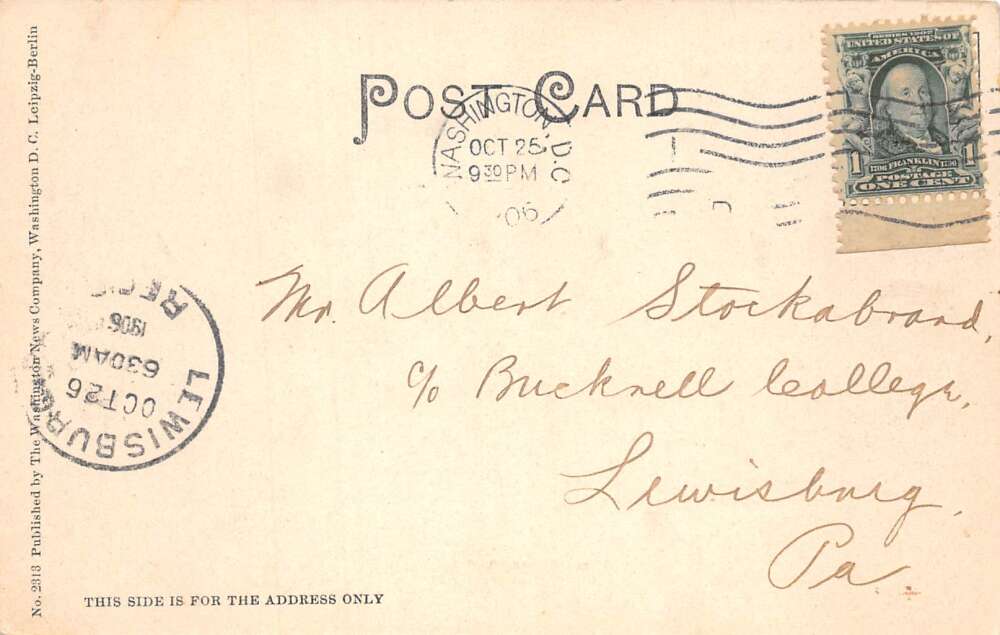 POST CARD
WASHINGTON, D.C.
OCT 25
9 30 PM
'06
SERIES 1902
UNITED STATES OF
AMERICA
1 1
1706 FRANKLIN 1790
POSTAGE
ONE CENT
Mr. Albert Stockabrand,
c/o Bucknell College,
Lewisburg,
Pa.
LEWISBURG
OCT 26
6 30 AM
1906
REC'D
No. 2313 Published by The Washington News Company, Washington D. C. Leipzig-Berlin
THIS SIDE IS FOR THE ADDRESS ONLY